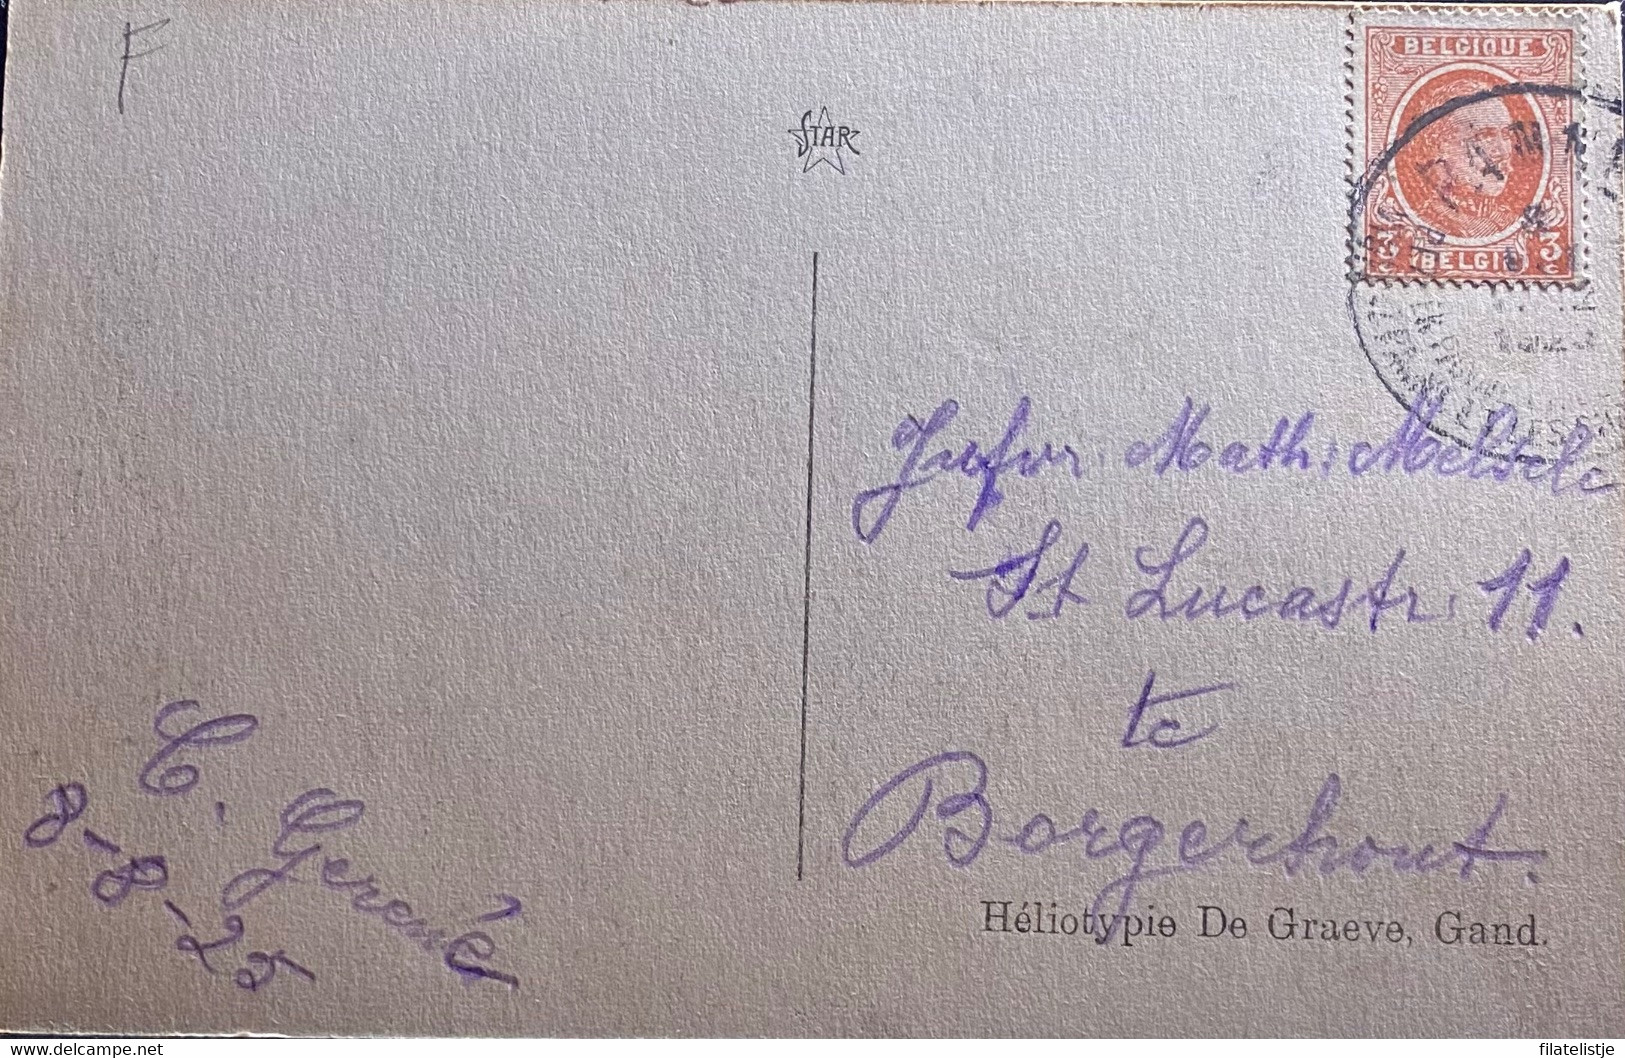 F
STAR
BELGIQUE
3 3
c BELGIË c
Jufvr. Math: Melsele
St Lucastr. 11.
te
Borgerhout.
C. Gerené
8-8-25
Héliotypie De Graeve, Gand.
For sale on www.delcampe.net
filatelistje